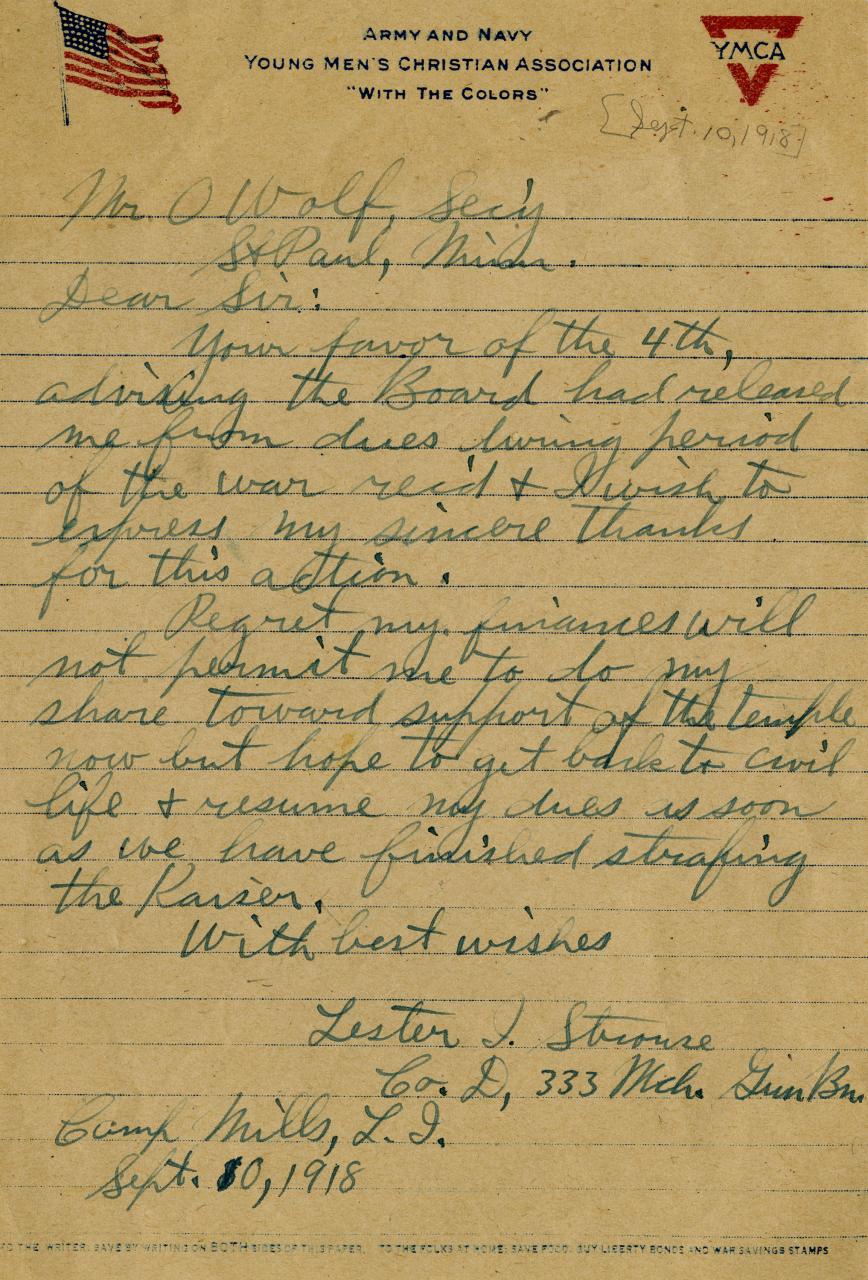 ARMY AND NAVY
YOUNG MEN'S CHRISTIAN ASSOCIATION
"WITH THE COLORS"
YMCA
[Sept. 10, 1918]
Mr. O Wolf, Sec'y
St Paul, Minn.
Dear Sir:
Your favor of the 4th,
advising the Board had released
me from dues during period
of the war rec'd & I wish to
express my sincere thanks
for this action.
Regret my finances will
not permit me to do my
share toward support of the temple
now but hope to get back to civil
life & resume my dues as soon
as we have finished strafing
the Kaiser.
With best wishes
Lester I. Strouse
Co. D, 333 Mch. Gun Bn.
Camp Mills, L. I.
Sept. 10, 1918
TO THE WRITER: SAVE BY WRITING ON BOTH SIDES OF THIS PAPER. TO THE FOLKS AT HOME: SAVE FOOD, BUY LIBERTY BONDS AND WAR SAVINGS STAMPS